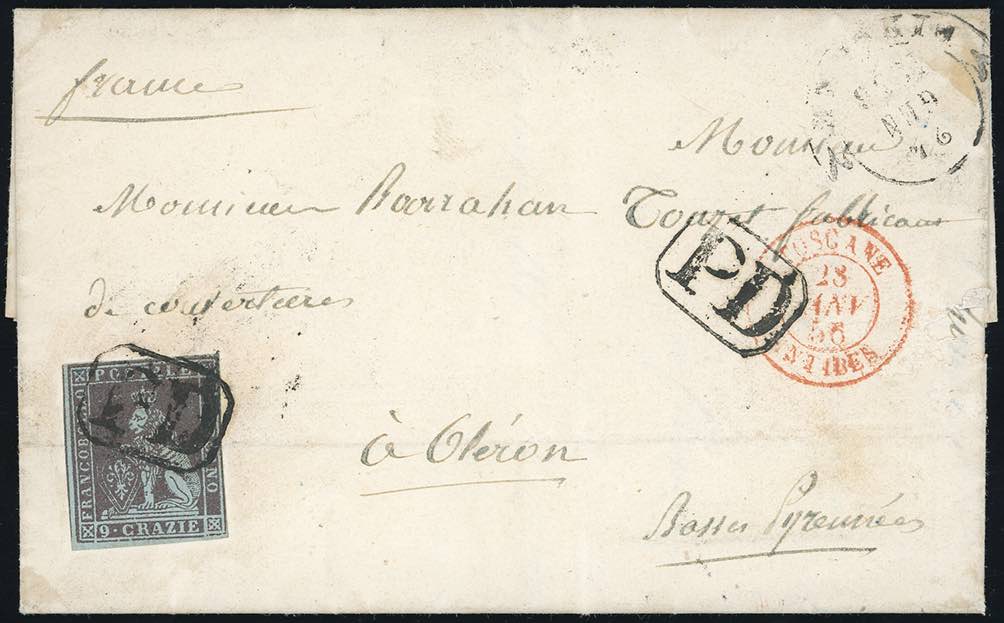 france
Monsieur
Monsieur Barrahan Touret fabricant
de couvertures
à Oléron
Basses Pyrennées
PD
TOSCANE
28
JANV
56
ANTIBES
PD
FRANCOBOLLO
POSTALE
9 · CRAZIE